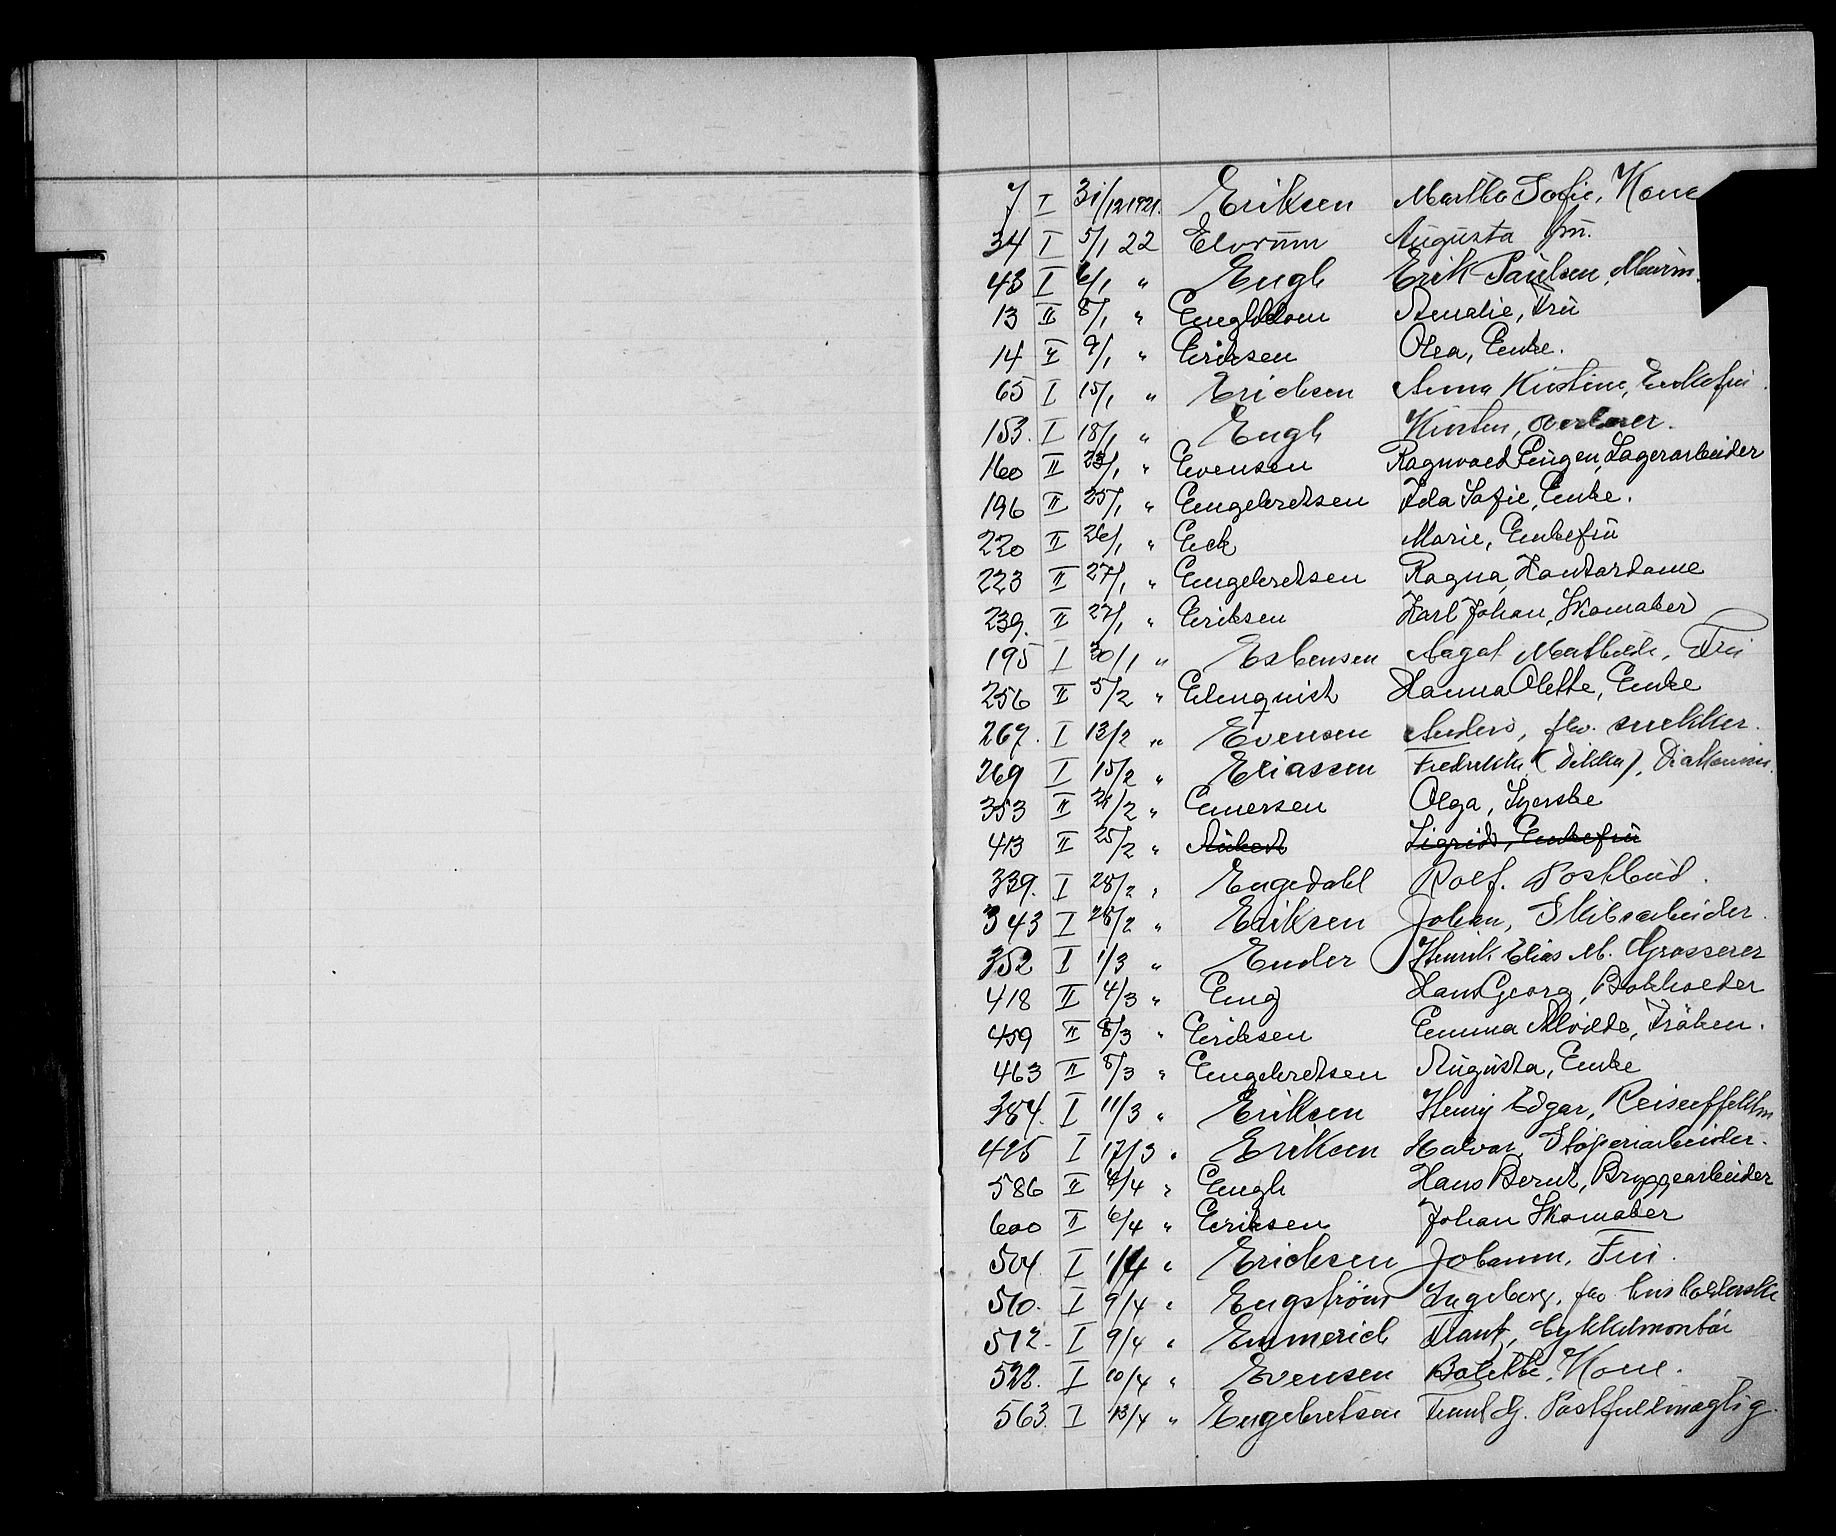 7 I 31/12 1921. Eriksen Martha Sofie, Kone
34 I 5/1 22 Elvrum Augusta fru.
43 I 6/1 " Engh Erik Paulsen,
13 II 8/1 " Engblom Amalie, Fru
14 II 9/1 " Eriksen Olea, Enke.
65 I 15/1 " Erichsen Anna Kirstine, Enkefru.
153. I 18/1 " Engh Kirsten, Overlærer.
160 II 23/1 " Evensen Ragnvald Eugen, Lagerarbeider
196 II 25/1 " Engebretsen Ida Sofie, Enke.
220 II 26/1 " Eck Marie, Enkefru
223 II 27/1 " Engebretsen Ragna, Kontordame
239. II 27/1 " Eriksen Karl Johan, Skomaker
195 I 30/1 " Esbensen Aagot Mathilde, Fru
256 II 5/2 " Elmquist Hanna Olette, Enke
267. I 13/2 " Evensen Anders, fhv. snekker.
269 I 15/2 " Eliassen Fredrikke (Dikka),
353 II 21/2 " Emersen Olga, Syerske
413 II 25/2 " Aubert Sigrid, Enkefru
339. I 28/2 " Engedahl Rolf. Postbud.
343 I 28/2 " Eriksen Johan, Skibsarbeider.
352 I 1/3 " Ender Henrik Elias M. Grosserer
418 II 4/3 " Eng Hans Georg, Bokholder
459 II 8/3 " Eriksen Emma Alvilde, Frøken.
463 II 8/3 " Engebretsen Augusta, Enke
384. I 11/3 " Eriksen Henry Edgar, Reiseeffektm
425 I 17/3 " Eriksen Halvor, Støperiarbeider.
586 II 4/4 " Engh Hans Bernt, Bryggearbeider
600 II 6/4 " Eriksen Johan Skomaker
504. I 1/4 " Erichsen Johanne, Fru.
510. I 9/4 " Engstrøm Ingeborg, fhv. husholderske
512. I 9/4 " Emmerich Frantz, Cykkelmontør
522. I 10/4 " Evensen Bolette, Kone.
563. I 13/4 " Engebretsen G. Postfullmægtig.